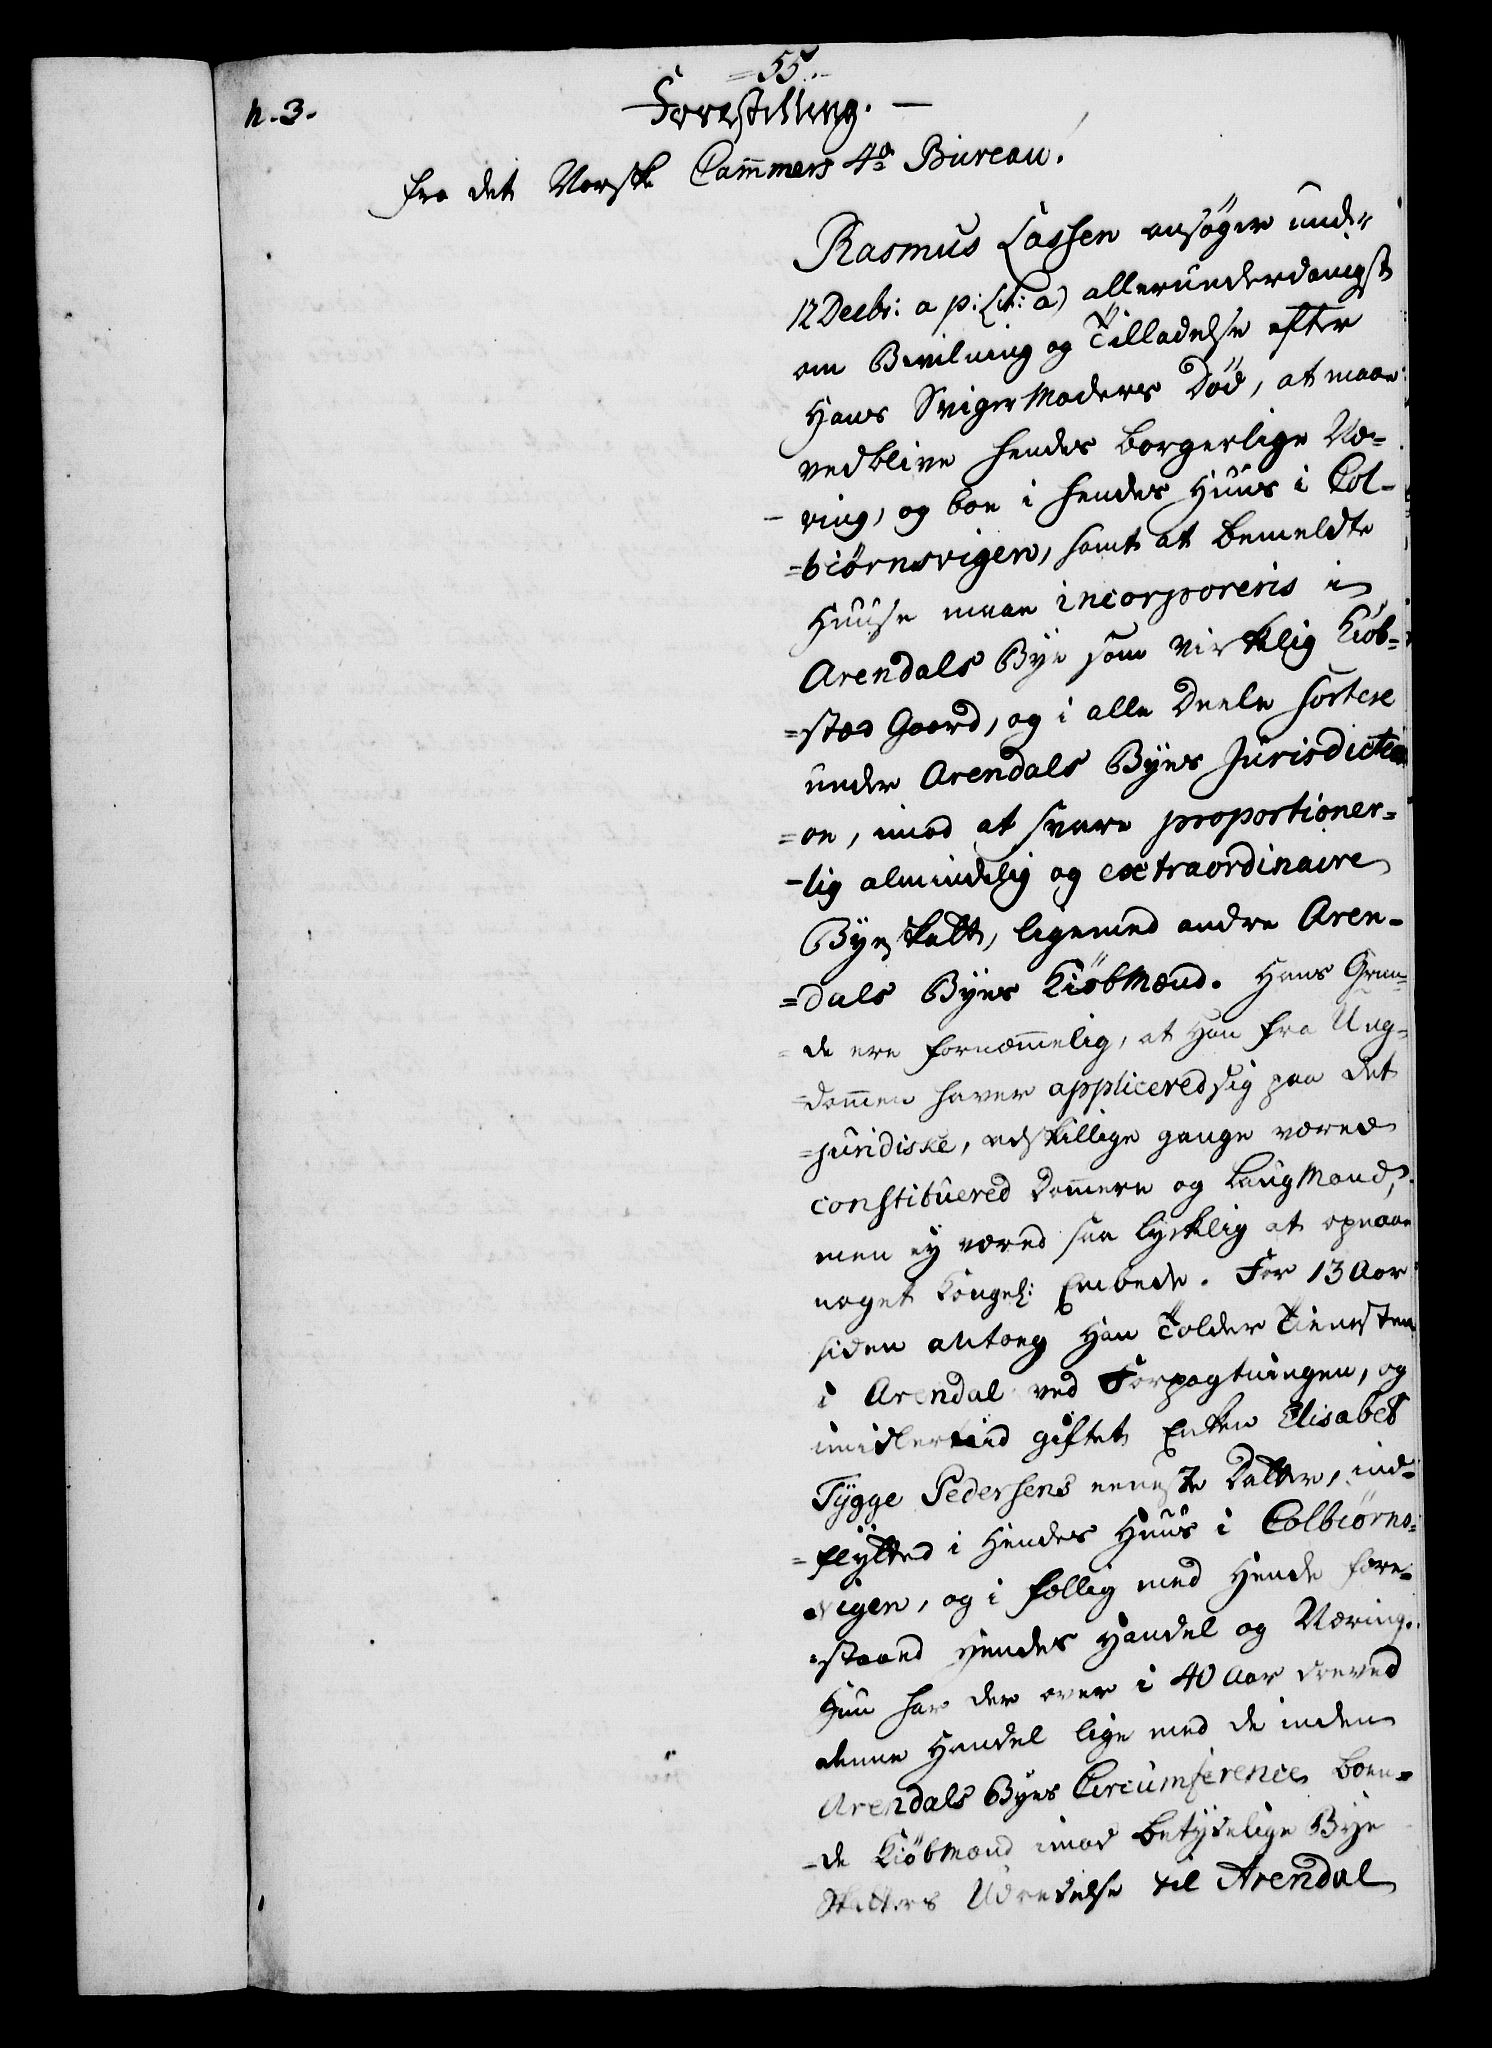 =55.=
n. 3.
Forestilling.
fra det Norske Cammers 4de Bureau.
Rasmus Lassen ansøger under
12 Decbr: a p: (Lit: a) allerunderdanigst
om Bevilning og Tilladelse efter
Hans SvigerModers Død, at maae
vedblive hendes borgerlige Næ-
-ring, og boe i hendes Huus i Col-
=biørnsvigen, samt at bemeldte
Huuse maae incorporeris i
Arendals Bye som virkelig Kiöb-
=stad Gaard, og i alle Deele sortere
under Arendals Byes Jurisdicti
=on, imod at svare proportioner-
-lig almindelig og extraordinaire
Byeskatt, ligemed andre Aren-
=dals Byes KiöbMænd. Hans Grun-
=de ere fornemmelig, at Han fra Ung-
=dommen haver applicered sig paa det
=juridiske, adskillige gange været
constitueret Dommere og LaugMand,
men ey været saa lyklig at opnaae
noget Kongel: Embede. For 13 Aar
siden antoeg Han Tolder Tienesten
i Arendal ved Forpagtningen, og
imidlertiid giftet Enken Elisabet
Tygge Pedersens eeneste Datter, ind-
=flytted i Hendes Huus i Colbiörns-
vigen, og i fællig med Hende fore-
=staaed Hendes Handel og Næring.
Hun har der over i 40 Aar dreved
denne Handel lige med de inden
Arendals Byes Circumference boen-
-de KiöbMænd imod betydelige Bye
Skatters Udredelse til Arendal